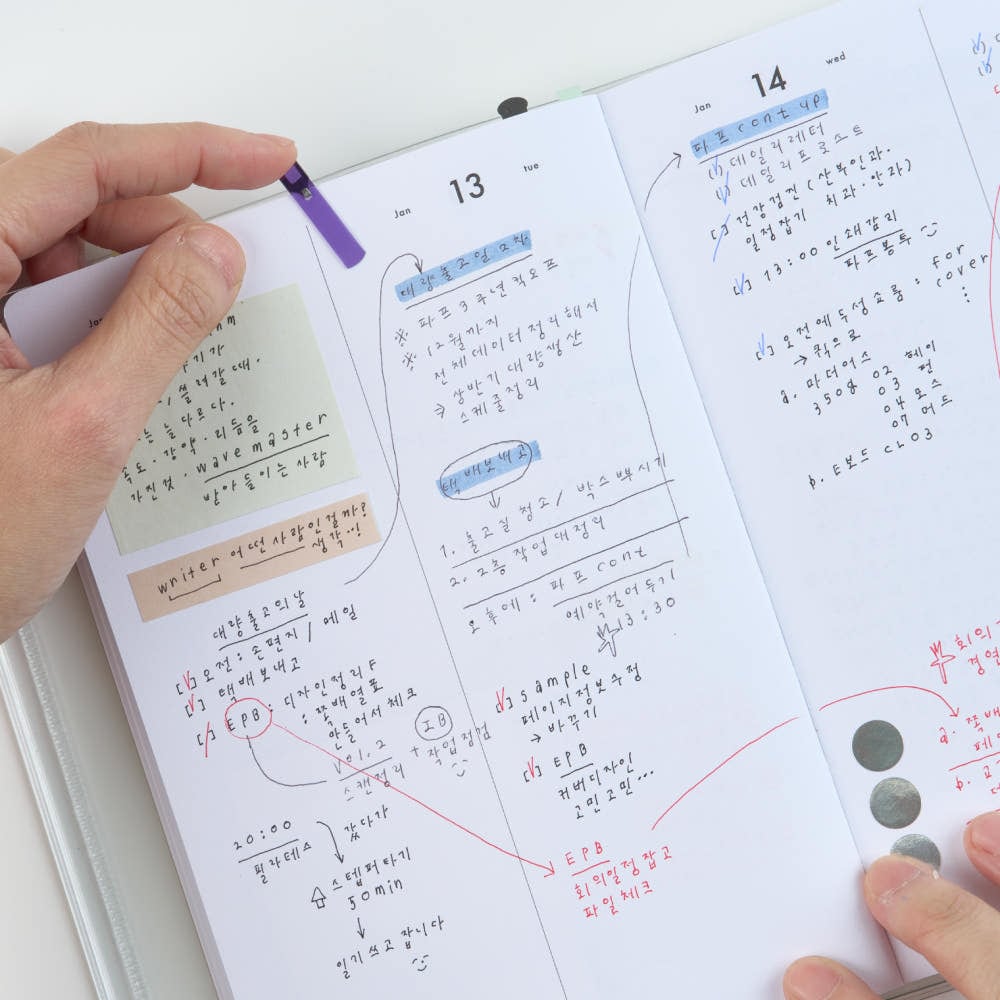 Jan
nm
기가
/ 쓸려갈 때.
는 늘 다르다.
속도·강약·리듬을
가진 것. wave master
받아들이는 사람
writer 어떤 사람인걸까?
생각…!
대량출고의날
[V] 오전: 손편지 / 메일
[V] 택배보내고
[/] EPB : 디자인정리 F
: 쪽배열표
만들어서 체크
Vol. 2
스캔정리
IB
+ 작업점검
20:00
필라테스
갔다가
스텝퍼타기
50min
일기쓰고 잡니다
Jan 13 tue
대량출고일 2차
※ 파프3주년킥오프
※ 12월까지
전체데이터정리해서
→ 상반기대량생산
스케줄정리
택배보내고
1. 출고실 청소 / 박스뿌시기
2. 2층 작업대정리
오후에: 파프 cont
예약걸어두기
13:30
[V] sample
페이지정보수정
→ 바꾸기
[V] EPB
커버디자인
고민고민…
EPB
회의일정잡고
파일체크
Jan 14 wed
파프 cont up
[V] 데일리레터
[V] 데일리프로스트
[/] 건강검진 (산부인과.
일정잡기 치과·안과)
[V] 13:00 인쇄감리
파프봉투
[V] 오전에두성쇼룸: for
→ 퀵으로 cover
a. 마더어스 헤이
350g 02 펀
03
04 모스
07 머드
b. E보드 CL03
회의
경영
a. 쪽배
페이
b. 교